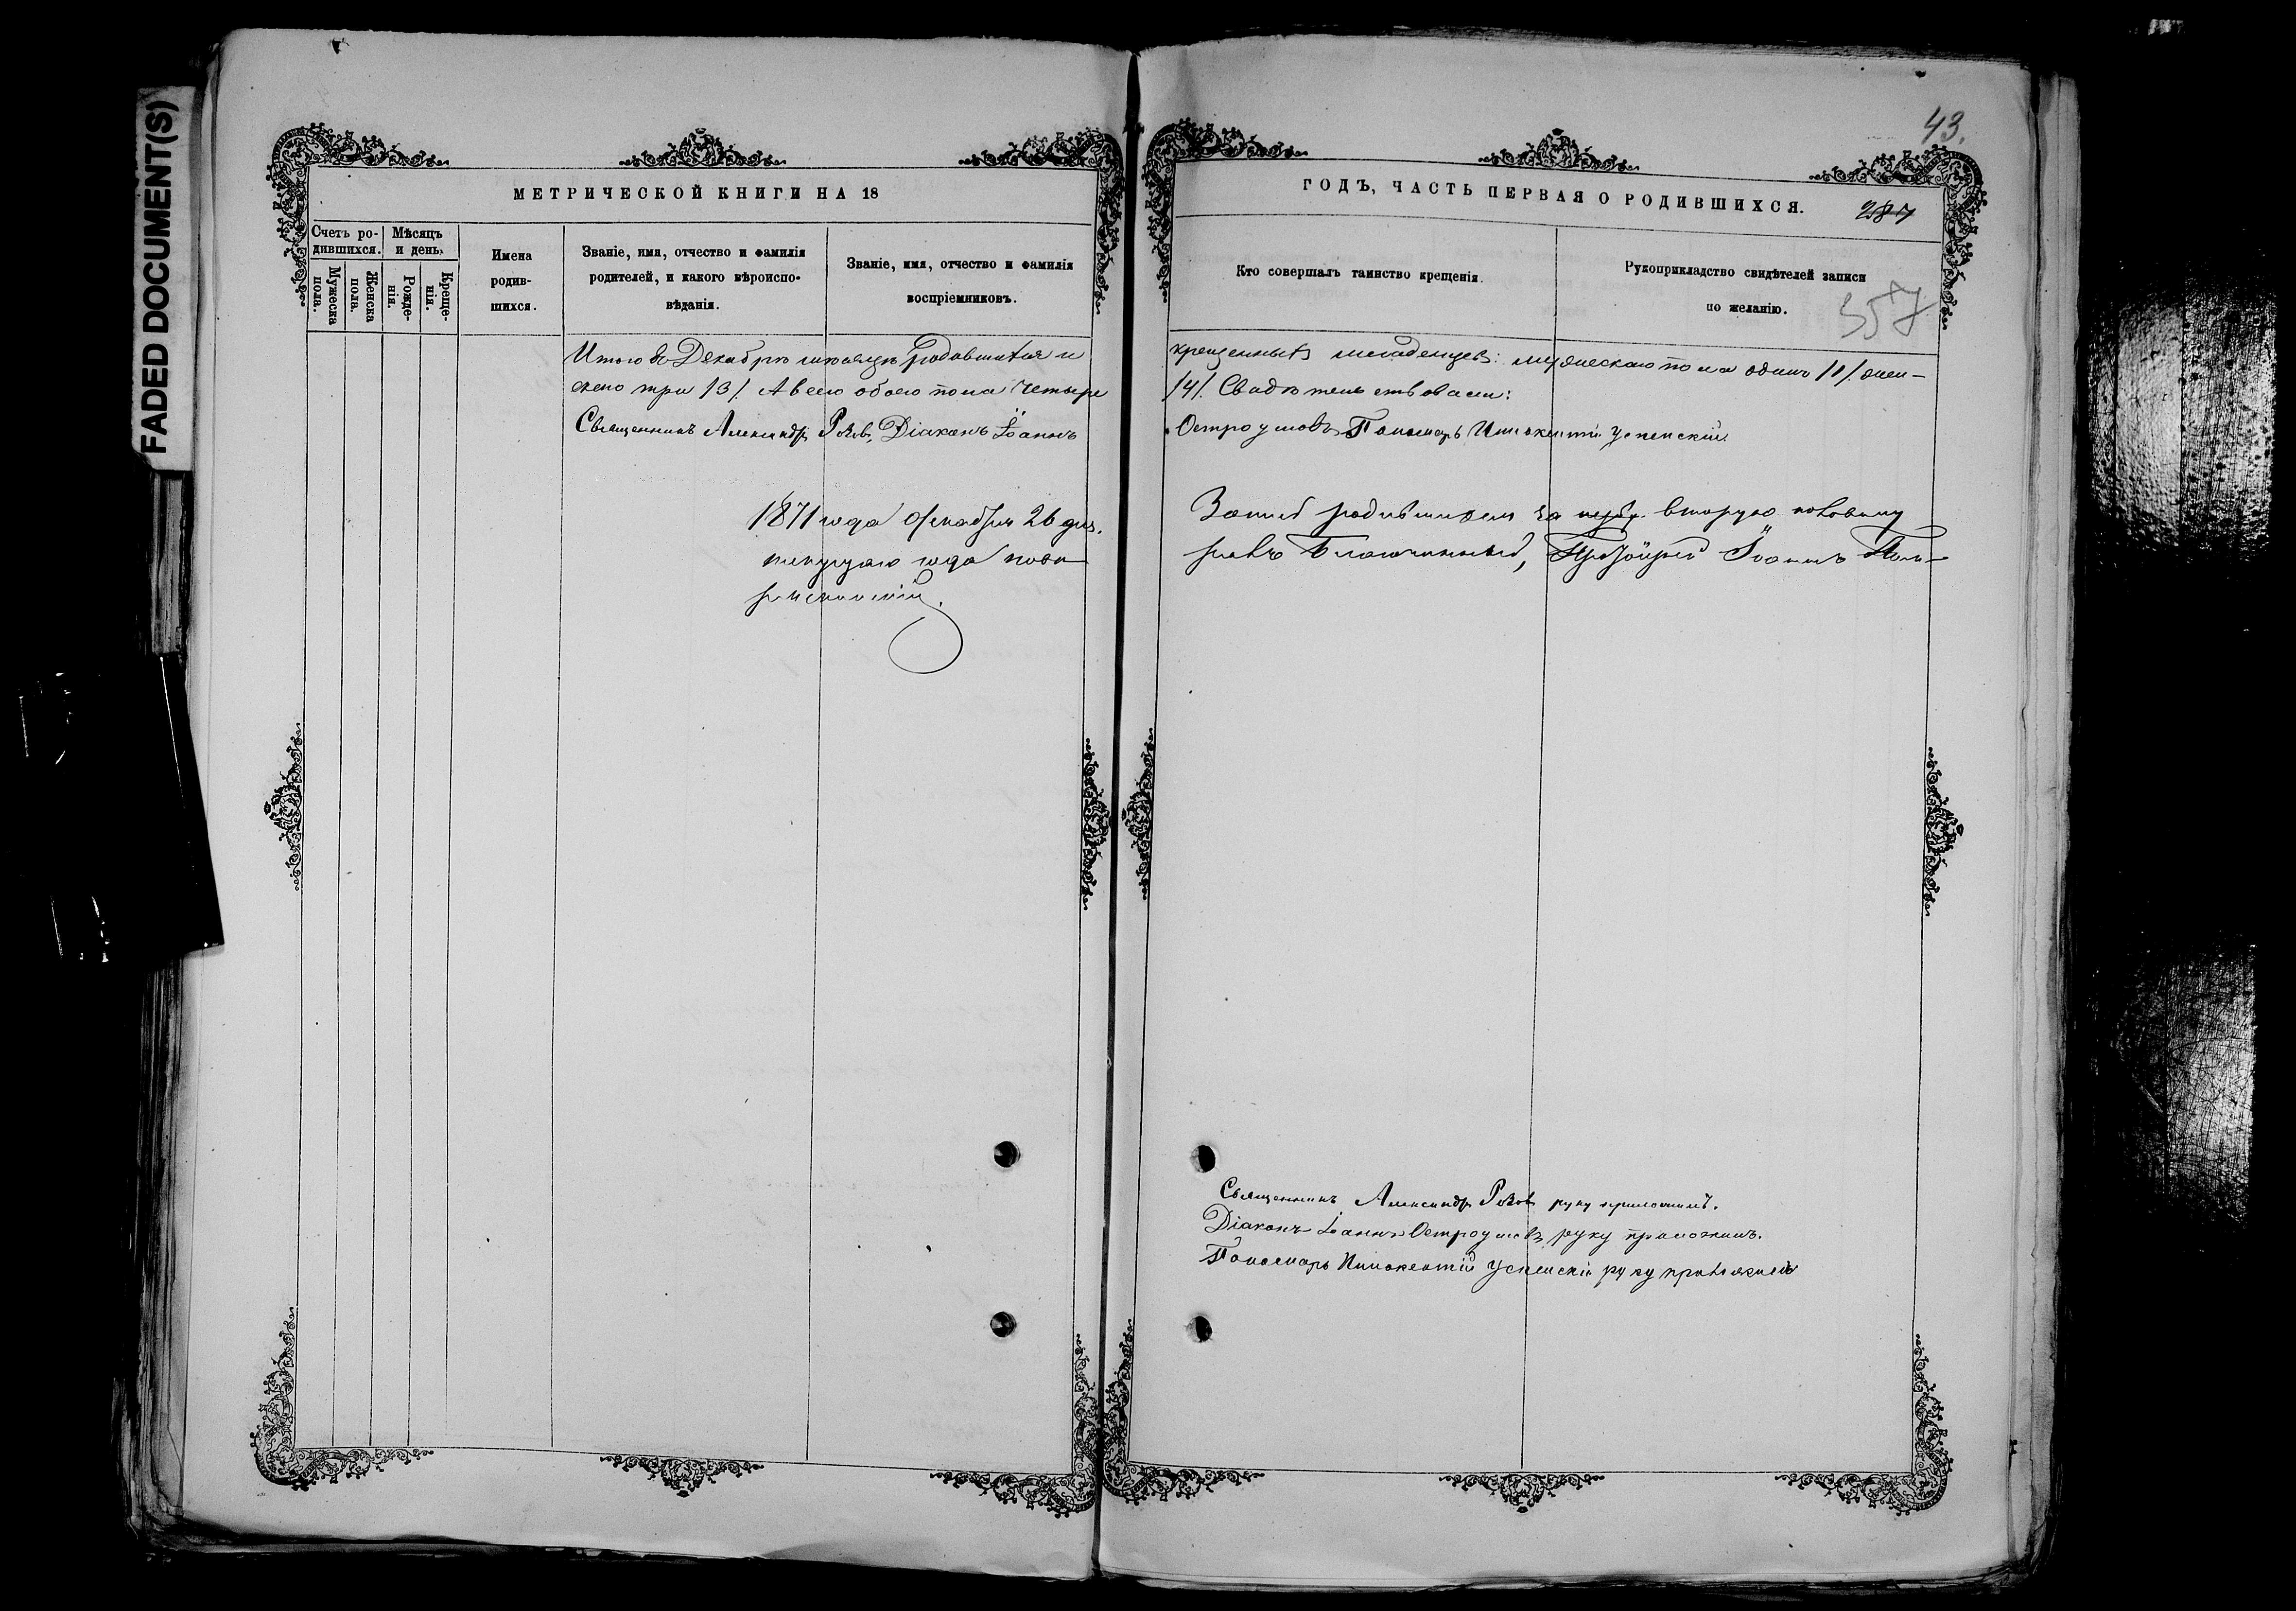 FADED DOCUMENT(S)
МЕТРИЧЕСКОЙ КНИГИ НА 18
Счетъ ро-
дившихся.
Мѣсяцъ
и день.
Мужеска
пола.
Женска
пола.
Рожде-
нія.
Креще-
нія.
Имена
родив-
шихся.
Званіе, имя, отчество и фамилія
родителей, и какого вѣроиспо-
вѣданія.
Званіе, имя, отчество и фамилія
воспріемниковъ.
Итого въ Декабрѣ мѣсяцѣ родившихся и
скаго три /3/. А всего обоего пола четыре
Священникъ Александръ Діаконъ Іоаннъ
1871 года декабря 26 дня.
текущаго года
43.
ГОДЪ, ЧАСТЬ ПЕРВАЯ О РОДИВШИХСЯ.
287
Кто совершалъ таинство крещенія.
Рукоприкладство свидѣтелей записи
по желанію.
357
крещенныхъ младенцевъ: мужескаго пола одинъ /1/. жен-
/4/. Свидѣтельствовали:
Остроумовъ Пономарь Иннокентій Успенскій
родившихся за вторую половину
Благочинный, Іоаннъ
Священникъ Александръ руку приложилъ.
Діаконъ Іоаннъ Остроумовъ руку приложилъ.
Пономарь Иннокентій Успенскій руку приложилъ